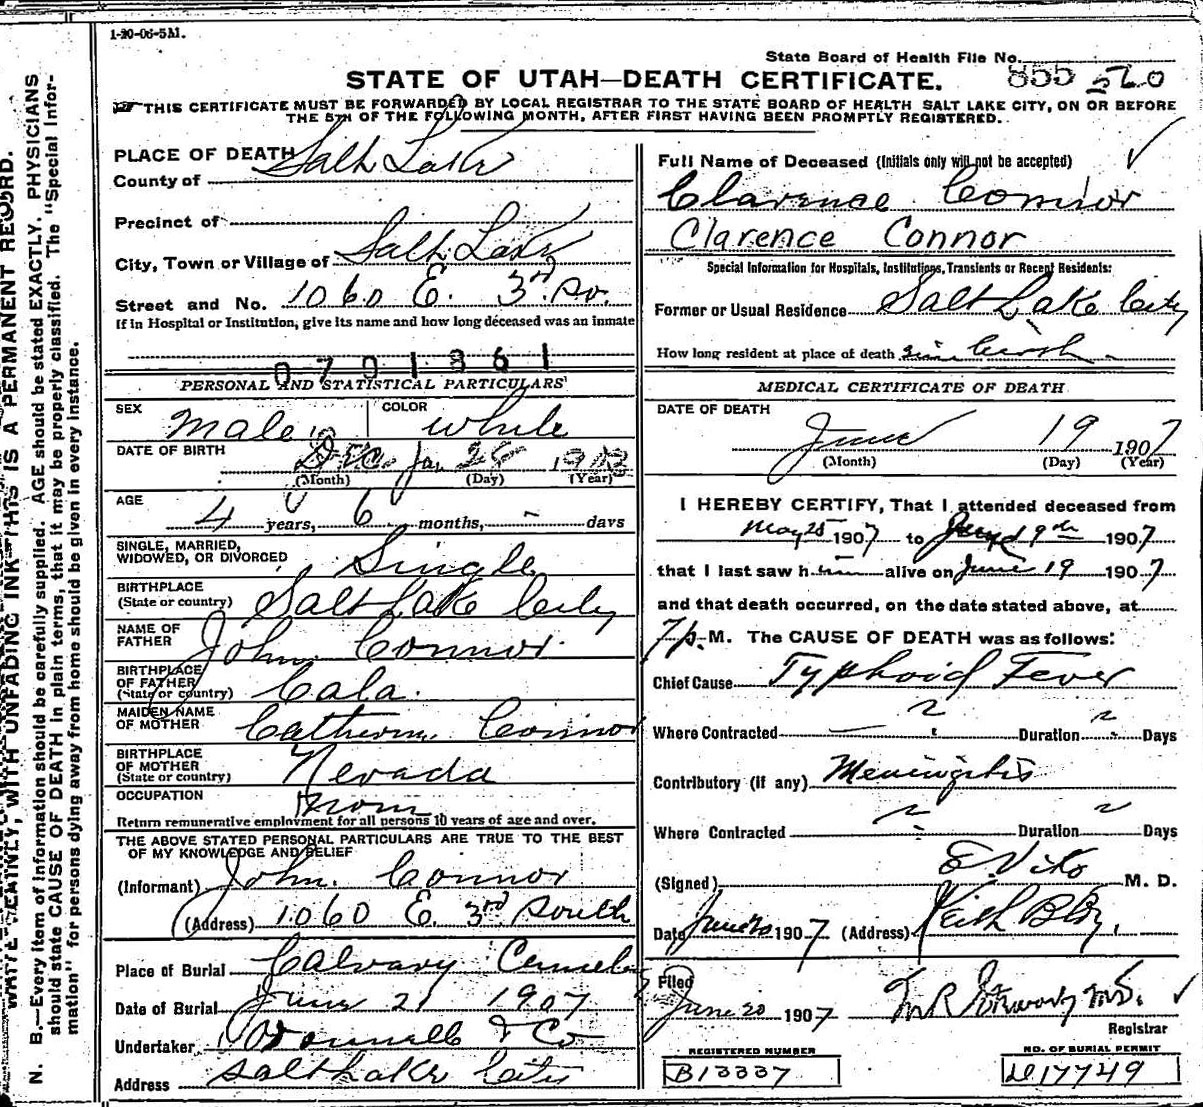 1-20-06-5M.
State Board of Health File No. 855 560
STATE OF UTAH—DEATH CERTIFICATE.
THIS CERTIFICATE MUST BE FORWARDED BY LOCAL REGISTRAR TO THE STATE BOARD OF HEALTH SALT LAKE CITY, ON OR BEFORE
THE 5TH OF THE FOLLOWING MONTH, AFTER FIRST HAVING BEEN PROMPTLY REGISTERED.
PLACE OF DEATH
County of Salt Lake
Precinct of
City, Town or Village of Salt Lake
Street and No. 1060 E. 3rd So.
If in Hospital or Institution, give its name and how long deceased was an inmate
0701861
PERSONAL AND STATISTICAL PARTICULARS
SEX Male
COLOR White
DATE OF BIRTH Dec. Jan 25 1903
(Month) (Day) (Year)
AGE 4 years, 6 months, - days
SINGLE, MARRIED,
WIDOWED, OR DIVORCED Single
BIRTHPLACE
(State or country) Salt Lake City
NAME OF
FATHER John Connor
BIRTHPLACE
OF FATHER
(State or country) Cala.
MAIDEN NAME
OF MOTHER Catherine Connor
BIRTHPLACE
OF MOTHER
(State or country) Nevada
OCCUPATION
Return remunerative employment for all persons 10 years of age and over.
THE ABOVE STATED PERSONAL PARTICULARS ARE TRUE TO THE BEST
OF MY KNOWLEDGE AND BELIEF
(Informant) John Connor
(Address) 1060 E. 3rd South
Place of Burial Calvary
Date of Burial June 21 1907
Undertaker O'Donnell & Co
Address Salt Lake City
Full Name of Deceased (Initials only will not be accepted)
Clarence Connor
Clarence Connor
Special Information for Hospitals, Institutions, Transients or Recent Residents:
Former or Usual Residence Salt Lake City
How long resident at place of death since birth
MEDICAL CERTIFICATE OF DEATH
DATE OF DEATH
June 19 1907
(Month) (Day) (Year)
I HEREBY CERTIFY, That I attended deceased from
May 25 1907 to June 19th 1907
that I last saw him alive on June 19 1907
and that death occurred, on the date stated above, at
7 p. M. The CAUSE OF DEATH was as follows:
Chief Cause Typhoid Fever
Where Contracted ? Duration ? Days
Contributory (if any) Meningitis
Where Contracted ? Duration ? Days
(Signed) M. D.
Date June 20 1907 (Address) Keith Bldg.
Filed
June 20 1907 M.D.
Registrar
REGISTERED NUMBER
B13337
NO. OF BURIAL PERMIT
17749
WRITE PLAINLY, WITH UNFADING INK—THIS IS A PERMANENT RECORD.
N. B.—Every item of information should be carefully supplied. AGE should be stated EXACTLY. PHYSICIANS
should state CAUSE OF DEATH in plain terms, that it may be properly classified. The "Special Infor-
mation" for persons dying away from home should be given in every instance.